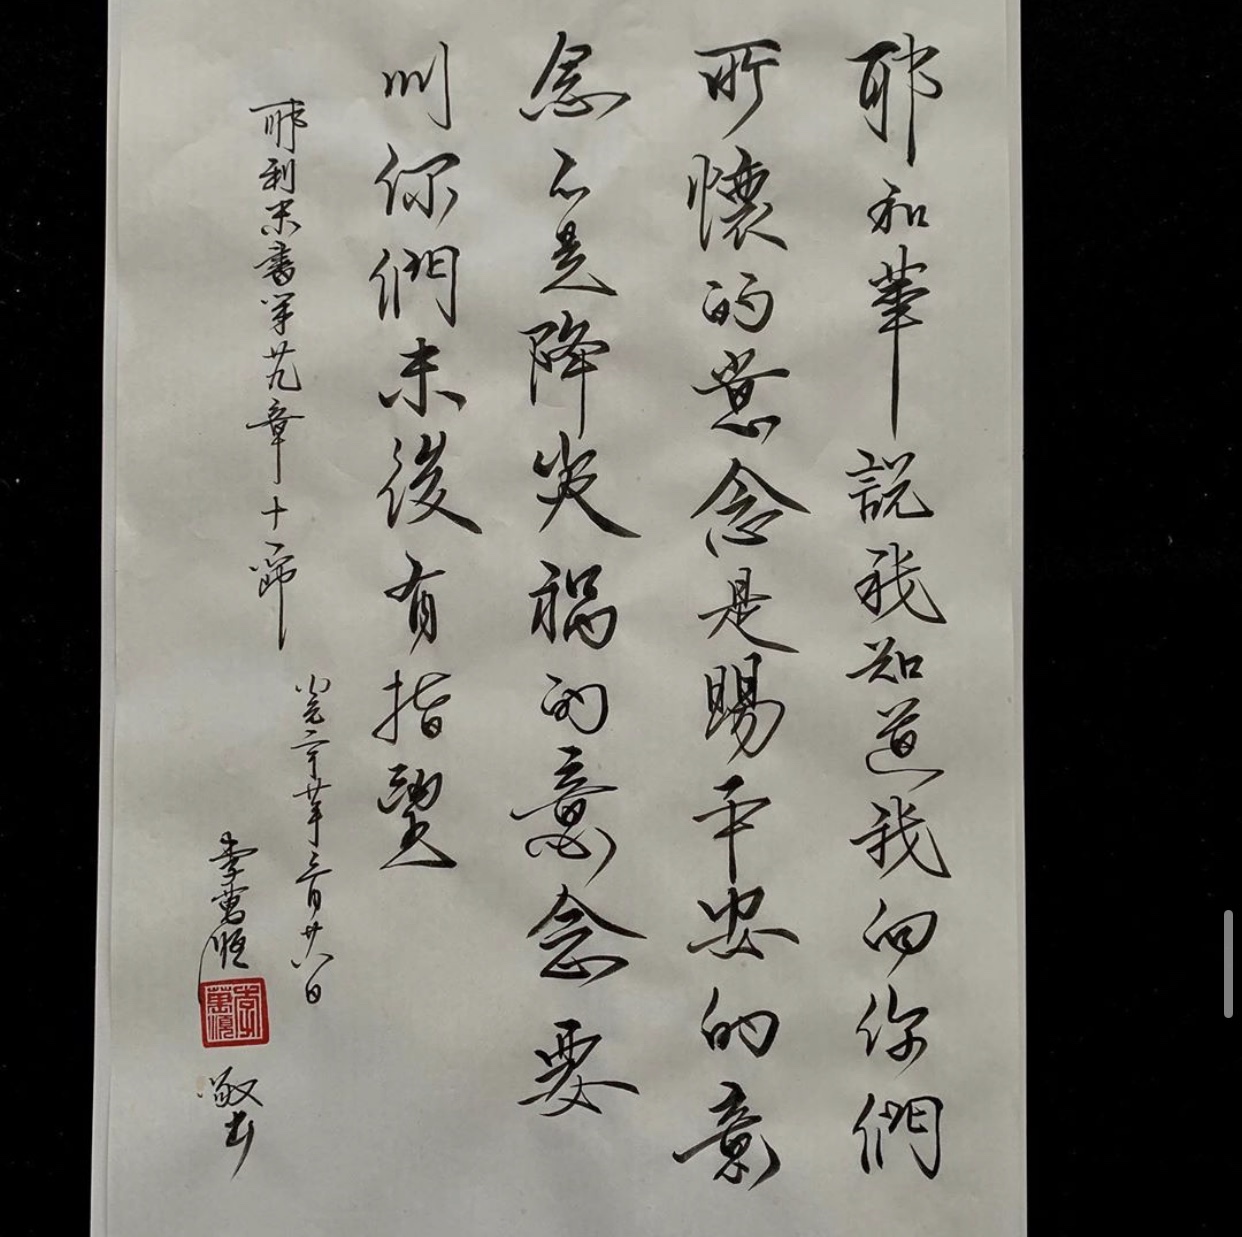 耶和華說我知道我向你們
所懷的意念是賜平安的意
念不是降災禍的意念要
叫你們末後有指望
耶利米書第廿九章十一節
主後二千廿年三月廿八日
李萬順
李萬順
敬書